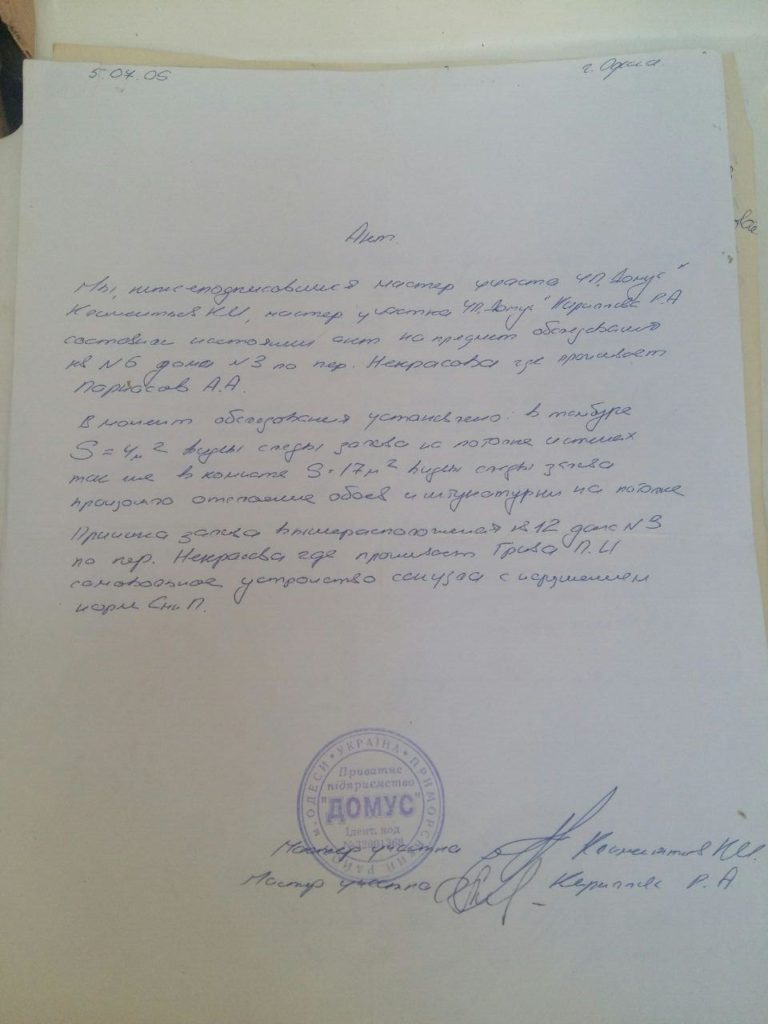 5.07.05 г. Одесса
Акт.
Мы, нижеподписавшиеся мастер участка ЧП "Домус"
К.И, мастер участка ЧП "Домус" Кириллова Р.А
составили настоящий акт на предмет обследования
кв №6 дома №3 по пер. Некрасова где проживает
А.А.
В момент обследования установлено: в тамбуре
S = 4м² видны следы залива на потолке и стенах
так же в комнате S = 17м² видны следы залива
произошло отслоение обоев и штукатурки на потолке
Причина залива вышерасположеная кв 12 дома №3
по пер. Некрасова где проживает Грива П.И
самовольное устройство санузла с нарушением
норм СниП.
м. ОДЕСИ * УКРАЇНА * ПРИМОРСЬКИЙ РАЙОН
Приватне
підприємство
"ДОМУС"
Ідент. код
Мастер участка К.И.
Мастер участка Р.А